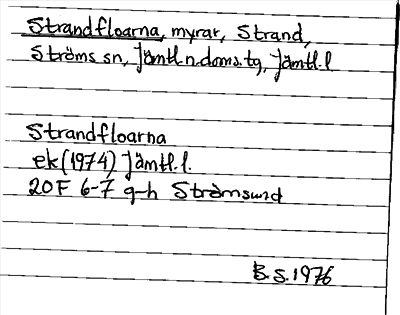 Strandfloarna, myrar, Strand,
Ströms sn, Jämtl.n.doms.tg, Jämtl.l
Strandfloarna
ek (1974) Jämtl.l.
20F 6-7 g-h Strömsund
B.S. 1976